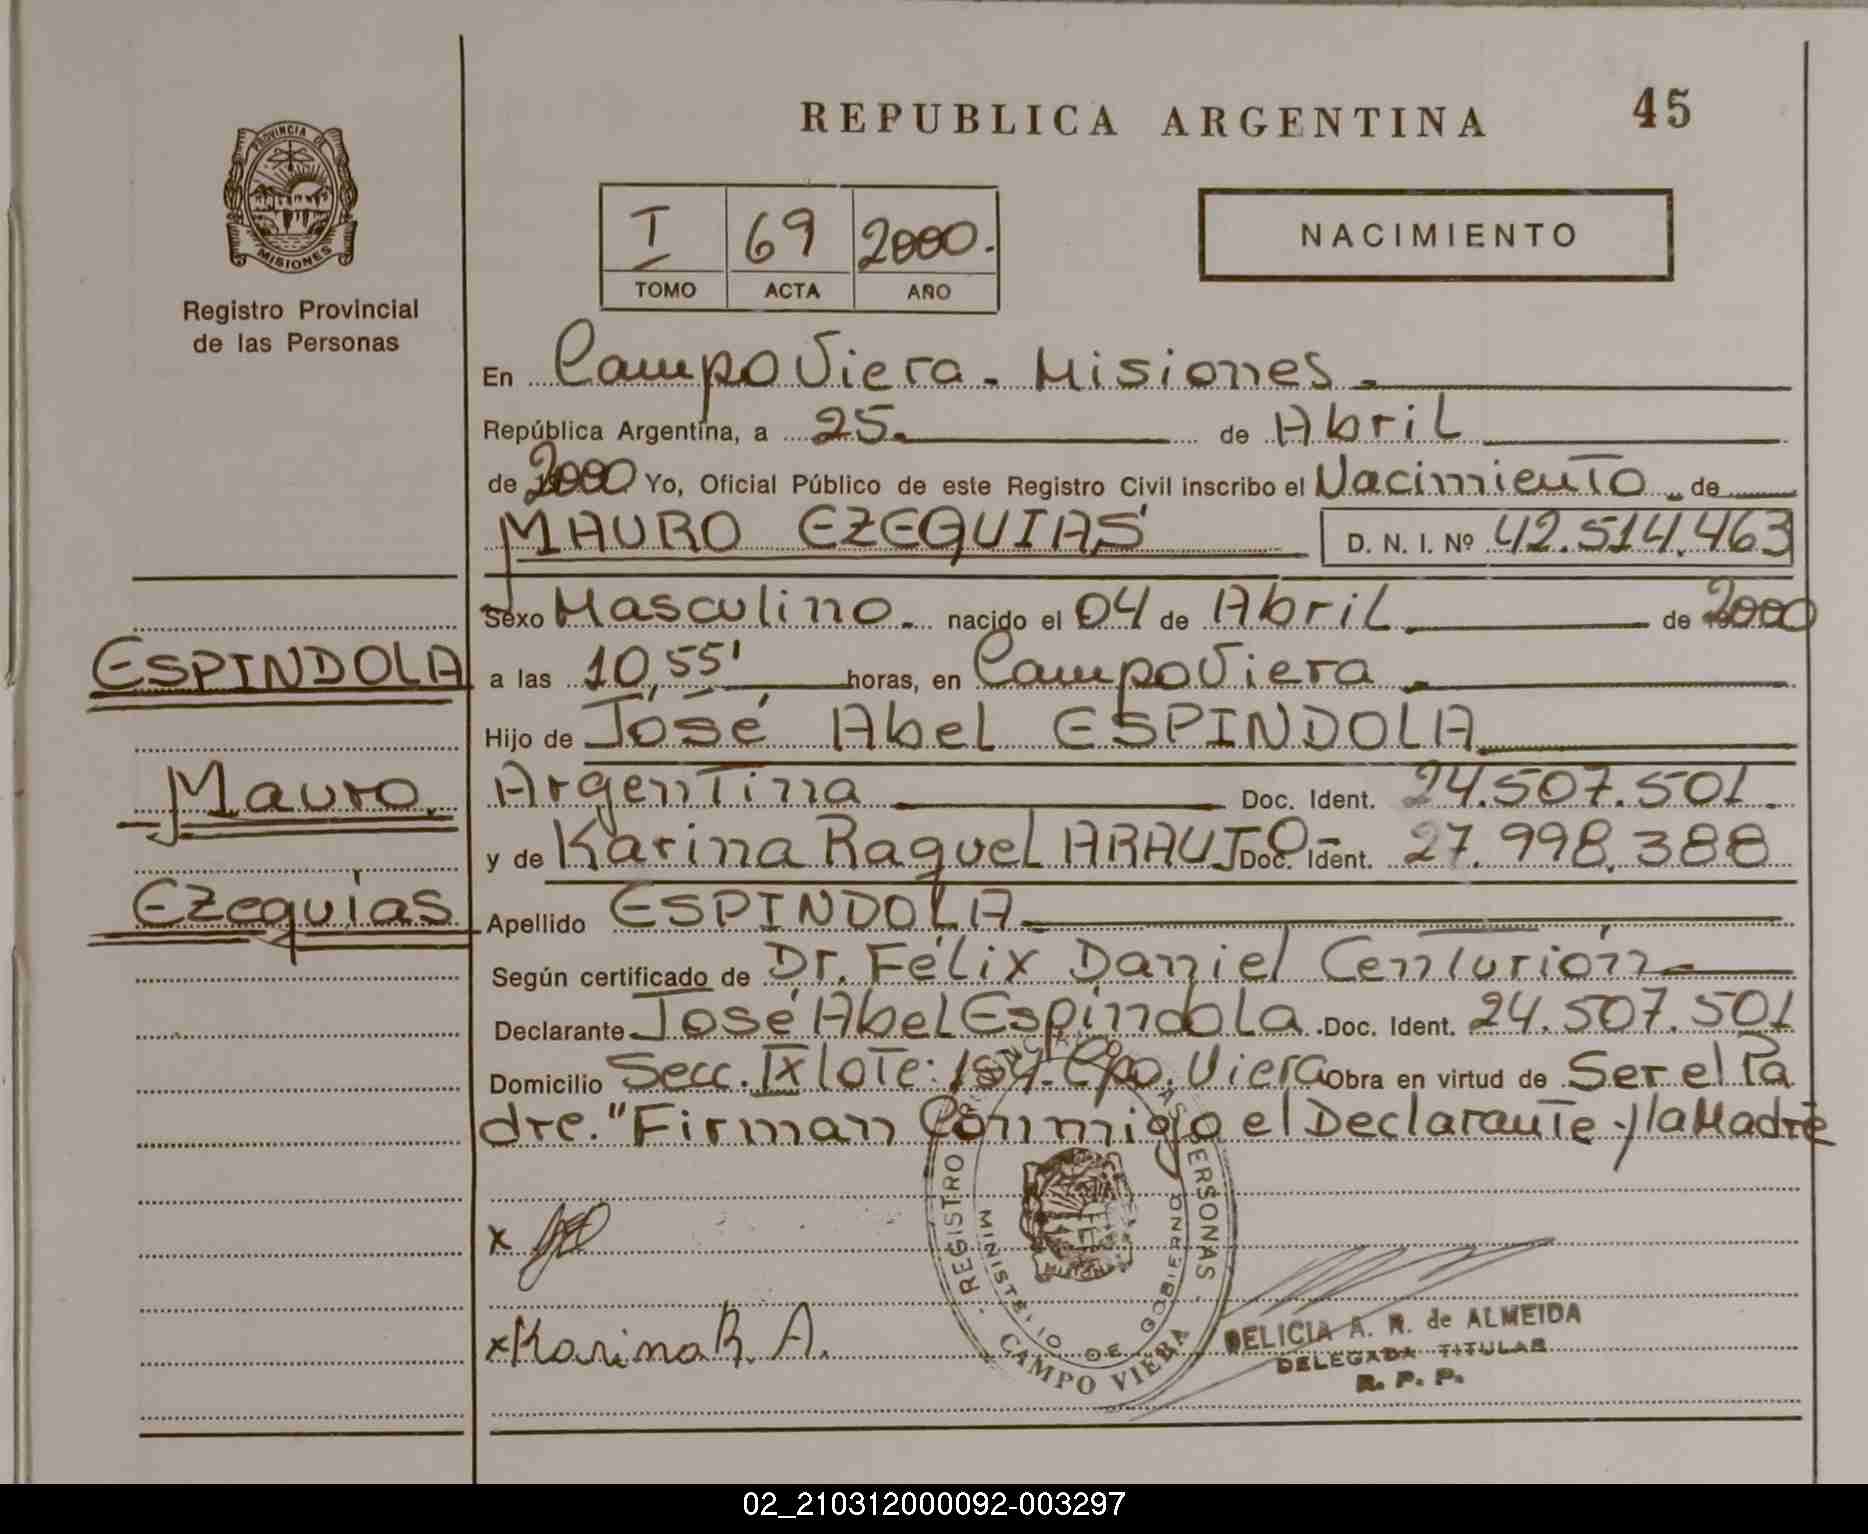 REPUBLICA ARGENTINA 45
PROVINCIA DE
MISIONES
Registro Provincial
de las Personas
I 69 2000.
TOMO ACTA AÑO
NACIMIENTO
En Campo Viera - Misiones.
República Argentina, a 25. de Abril
de 2000 Yo, Oficial Público de este Registro Civil inscribo el Nacimiento de
MAURO EZEQUIAS D. N. I. Nº 42.514.463
Sexo Masculino. nacido el 04 de Abril de 2000
ESPINDOLA
a las 10,55' horas, en Campo Viera
Hijo de José Abel ESPINDOLA
Mauro
Argentina Doc. Ident. 24.507.501.
y de Karina Raquel ARAUJO - Doc. Ident. 27.998.388
Ezequías
Apellido ESPINDOLA
Según certificado de Dr. Félix Daniel Centurión
Declarante José Abel Espíndola. Doc. Ident. 24.507.501
Domicilio Secc. IX lote: 184. Cpo. Viera Obra en virtud de Ser el Pa
dre. "Firman Conmigo el Declarante y la Madre
x
x Karina R. A.
REGISTRO PERSONAS
MINISTERIO DE GOBIERNO
CAMPO VIERA
DELICIA A. R. de ALMEIDA
DELEGADA TITULAR
R. P. P.
02_210312000092-003297